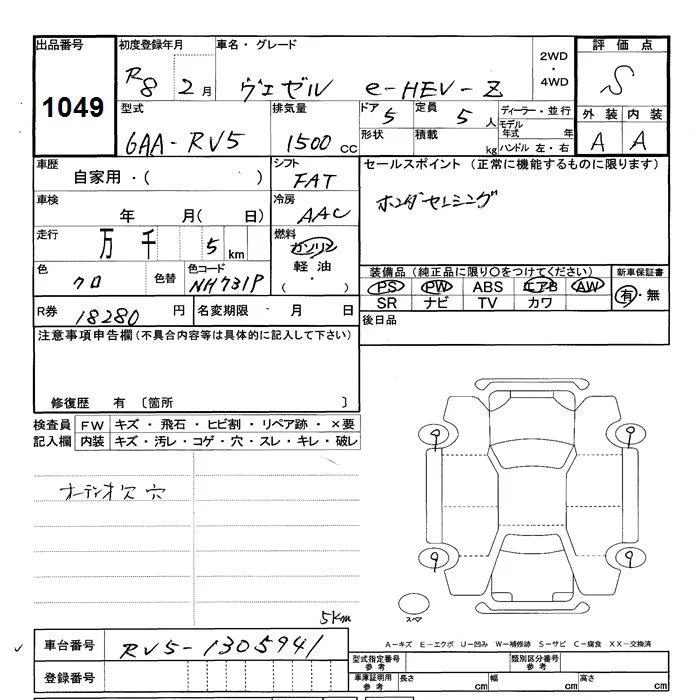 出品番号 初度登録年月 車名・グレード 2WD・4WD 評価点
1049 R8 2月 ヴェゼル e-HEV-Z S
型式 排気量 ドア 5 定員 5人 ディーラー・並行 外装 内装
6AA-RV5 1500cc 形状 積載 kg モデル年式 年 ハンドル 左・右 A A
車歴 シフト セールスポイント (正常に機能するものに限ります)
自家用・( ) FAT
車検 冷房 ホンダセンシング
年 月( 日) AAC
走行 燃料
万 千 5 km ガソリン
色 色替 色コード 軽油 装備品 (純正品に限り○をつけてください) 新車保証書
クロ NH731P ・( ) PS PW ABS エアB AW 有・無
SR ナビ TV カワ
R券 18280円 名変期限 ・ 月 日 後日品
注意事項申告欄 (不具合内容等は具体的に記入して下さい)
修復歴 有 〔箇所 〕
検査員 FW キズ・飛石・ヒビ割・リペア跡・×要
記入欄 内装 キズ・汚レ・コゲ・穴・スレ・キレ・破レ
オーディオ欠 穴
9 9
9 9
5km スペア
A-キズ E-エクボ U-凹み W-補修跡 S-サビ C-腐食 XX-交換済
車台番号 RV5-1305941 型式指定番号 参考 類別区分番号 参考
登録番号 車庫証明用 参考 長さ cm 幅 cm 高さ cm